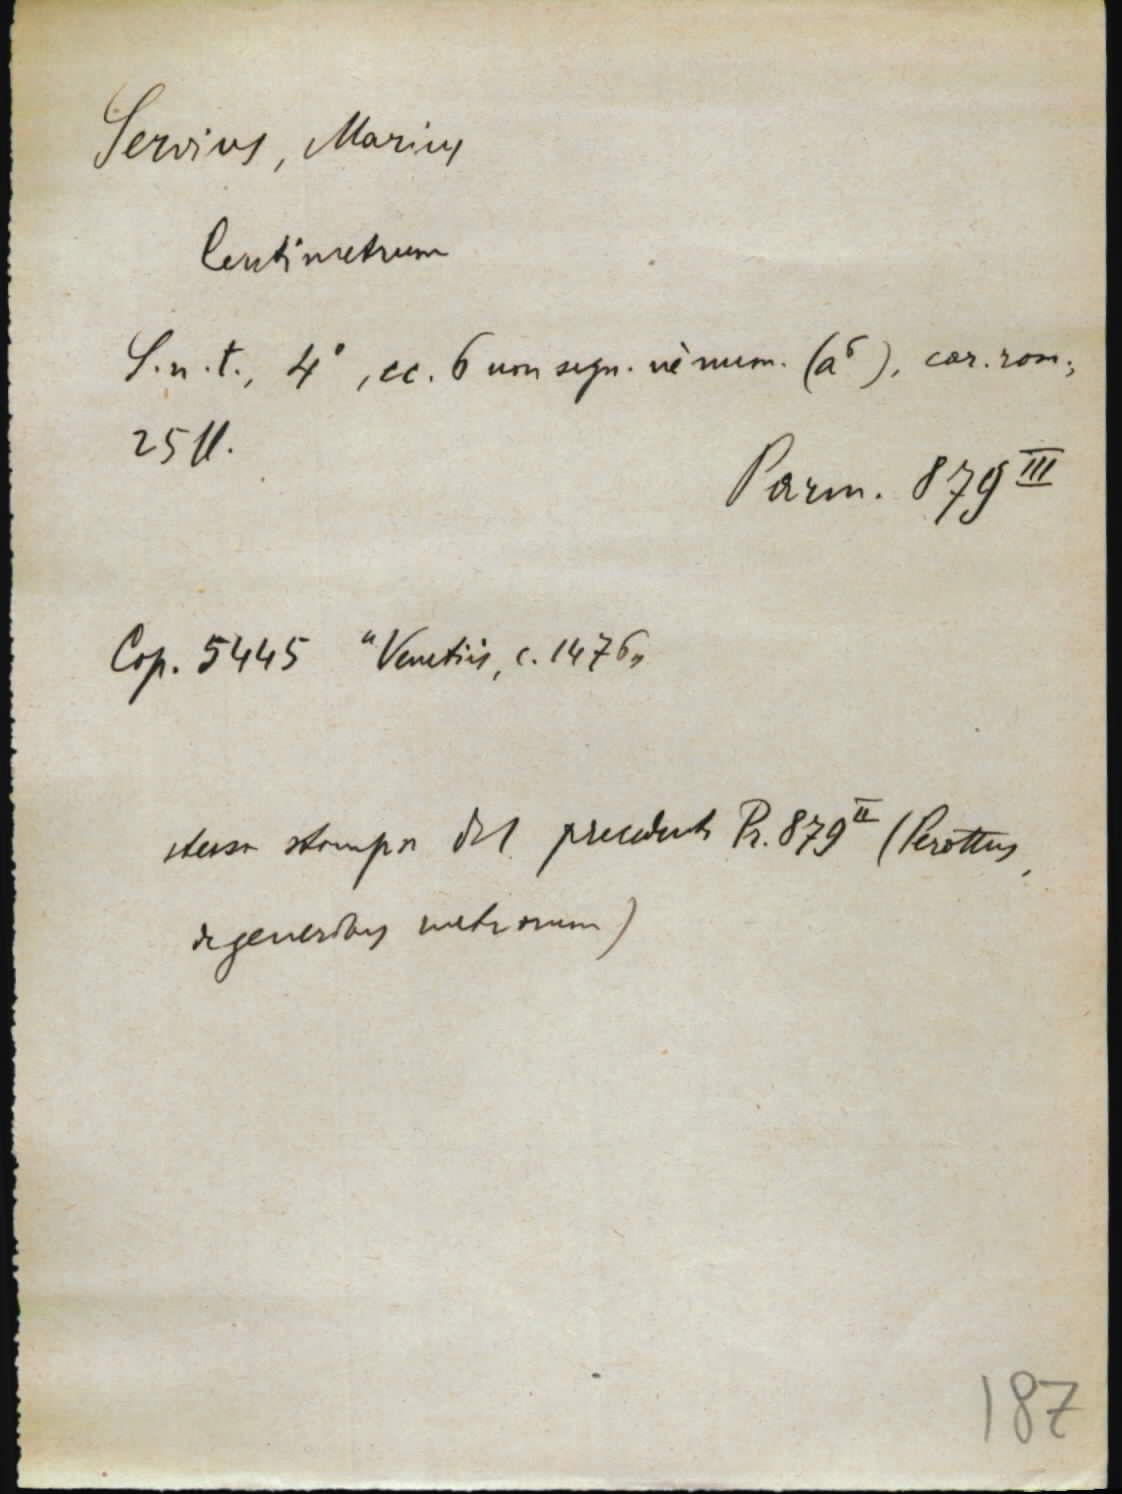 Servius, Marius
Centimetrum
S.n.t., 4°, cc. 6 non segn. nè num. (a⁶), car. rom.,
25 ll.
Parm. 879 III
Cop. 5445 "Venetiis, c. 1476"
stessa stampa del precedente Pr. 879 II (Perottus,
de generibus metrorum)
187